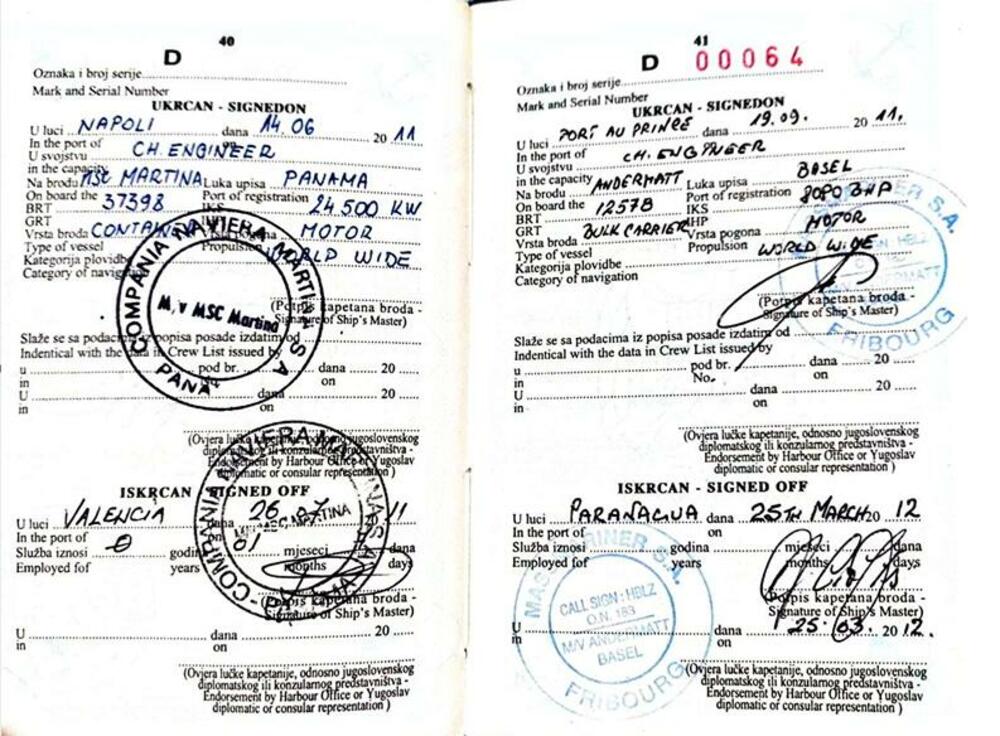 40
D
Oznaka i broj serije
Mark and Serial Number
UKRCAN - SIGNEDON
U luci NAPOLI dana 14.06 20 11
In the port of on
U svojstvu CH. ENGINEER
in the capacity
Na brodu MSC MARTINA Luka upisa PANAMA
On board the Port of registration
BRT 37398 IKS 24 500 KW
GRT
Vrsta broda CONTAINER MOTOR
Type of vessel Propulsion
Kategorija plovidbe WORLD WIDE
Category of navigation
COMPANIA NAVIERA MARTINA S.A
M.V MSC Martina
PANAMA
(Potpis kapetana broda -
Signature of Ship's Master)
Slaže se sa podacima iz popisa posade izdatim od
Indentical with the data in Crew List issued by
u pod br. dana 20
in No. on
U dana 20
in on
(Ovjera lučke kapetanije, odnosno jugoslovenskog
diplomatskog ili konzularnog predstavništva -
Endorsement by Harbour Office or Yugoslav
diplomatic or consular representation)
ISKRCAN - SIGNED OFF
U luci VALENCIA dana 26.07 20 11
In the port of on
Služba iznosi 0 godina 01 mjeseci dana
Employed fof years months days
(Potpis kapetana broda -
Signature of Ship's Master)
U dana 20
in on
(Ovjera lučke kapetanije, odnosno jugoslovenskog
diplomatskog ili konzularnog predstavništva -
Endorsement by Harbour Office or Yugoslav
diplomatic or consular representation )
41
D 00064
Oznaka i broj serije
Mark and Serial Number
UKRCAN - SIGNEDON
U luci PORT AU PRINCE dana 19.09. 20 11.
In the port of on
U svojstvu CH. ENGINEER
in the capacity
Na brodu ANDERMATT Luka upisa BASEL
On board the Port of registration
BRT 12578 IKS 8090 BHP
GRT IHP
Vrsta broda BULK CARRIER Vrsta pogona MOTOR
Type of vessel Propulsion
Kategorija plovidbe WORLD WIDE
Category of navigation
MARINER S.A.
CALL SIGN: HBLZ
M/V ANDERMATT
FRIBOURG
(Potpis kapetana broda -
Signature of Ship's Master)
Slaže se sa podacima iz popisa posade izdatim od
Indentical with the data in Crew List issued by
u pod br. dana 20
in No. on
U dana 20
in on
(Ovjera lučke kapetanije, odnosno jugoslovenskog
diplomatskog ili konzularnog predstavništva -
Endorsement by Harbour Office or Yugoslav
diplomatic or consular representation )
ISKRCAN - SIGNED OFF
U luci PARANAGUA dana 25TH MARCH 20 12
In the port of on
Služba iznosi godina mjeseci dana
Employed fof years months days
MARINER S.A.
CALL SIGN : HBLZ
O.N. 183
M/V ANDERMATT
BASEL
FRIBOURG
(Potpis kapetana broda -
Signature of Ship's Master)
U dana 25.03. 2012.
in on
(Ovjera lučke kapetanije, odnosno jugoslovenskog
diplomatskog ili konzularnog predstavništva -
Endorsement by Harbour Office or Yugoslav
diplomatic or consular representation )